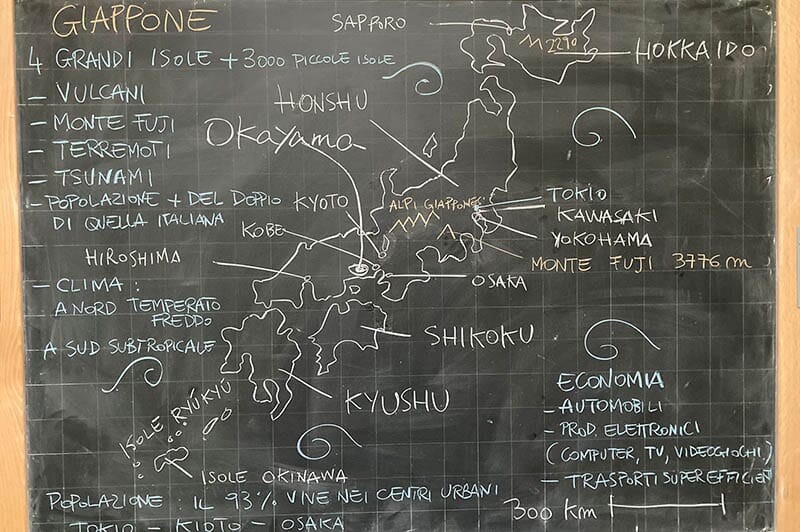 GIAPPONE
4 GRANDI ISOLE + 3000 PICCOLE ISOLE
- VULCANI
- MONTE FUJI
- TERREMOTI
- TSUNAMI
- POPOLAZIONE + DEL DOPPIO
DI QUELLA ITALIANA
- CLIMA :
A NORD TEMPERATO
FREDDO
A SUD SUBTROPICALE
SAPPORO
2290
HOKKAIDO
HONSHU
Okayama
KYOTO
KOBE
HIROSHIMA
ALPI GIAPPONESI
TOKIO
KAWASAKI
YOKOHAMA
MONTE FUJI 3776 m
OSAKA
SHIKOKU
KYUSHU
ISOLE RYŪKYŪ
ISOLE OKINAWA
ECONOMIA
- AUTOMOBILI
- PROD. ELETTRONICI
(COMPUTER, TV, VIDEOGIOCHI)
- TRASPORTI SUPEREFFICIEN
300 km
POPOLAZIONE : IL 93% VIVE NEI CENTRI URBANI
TOKIO - KIOTO - OSAKA